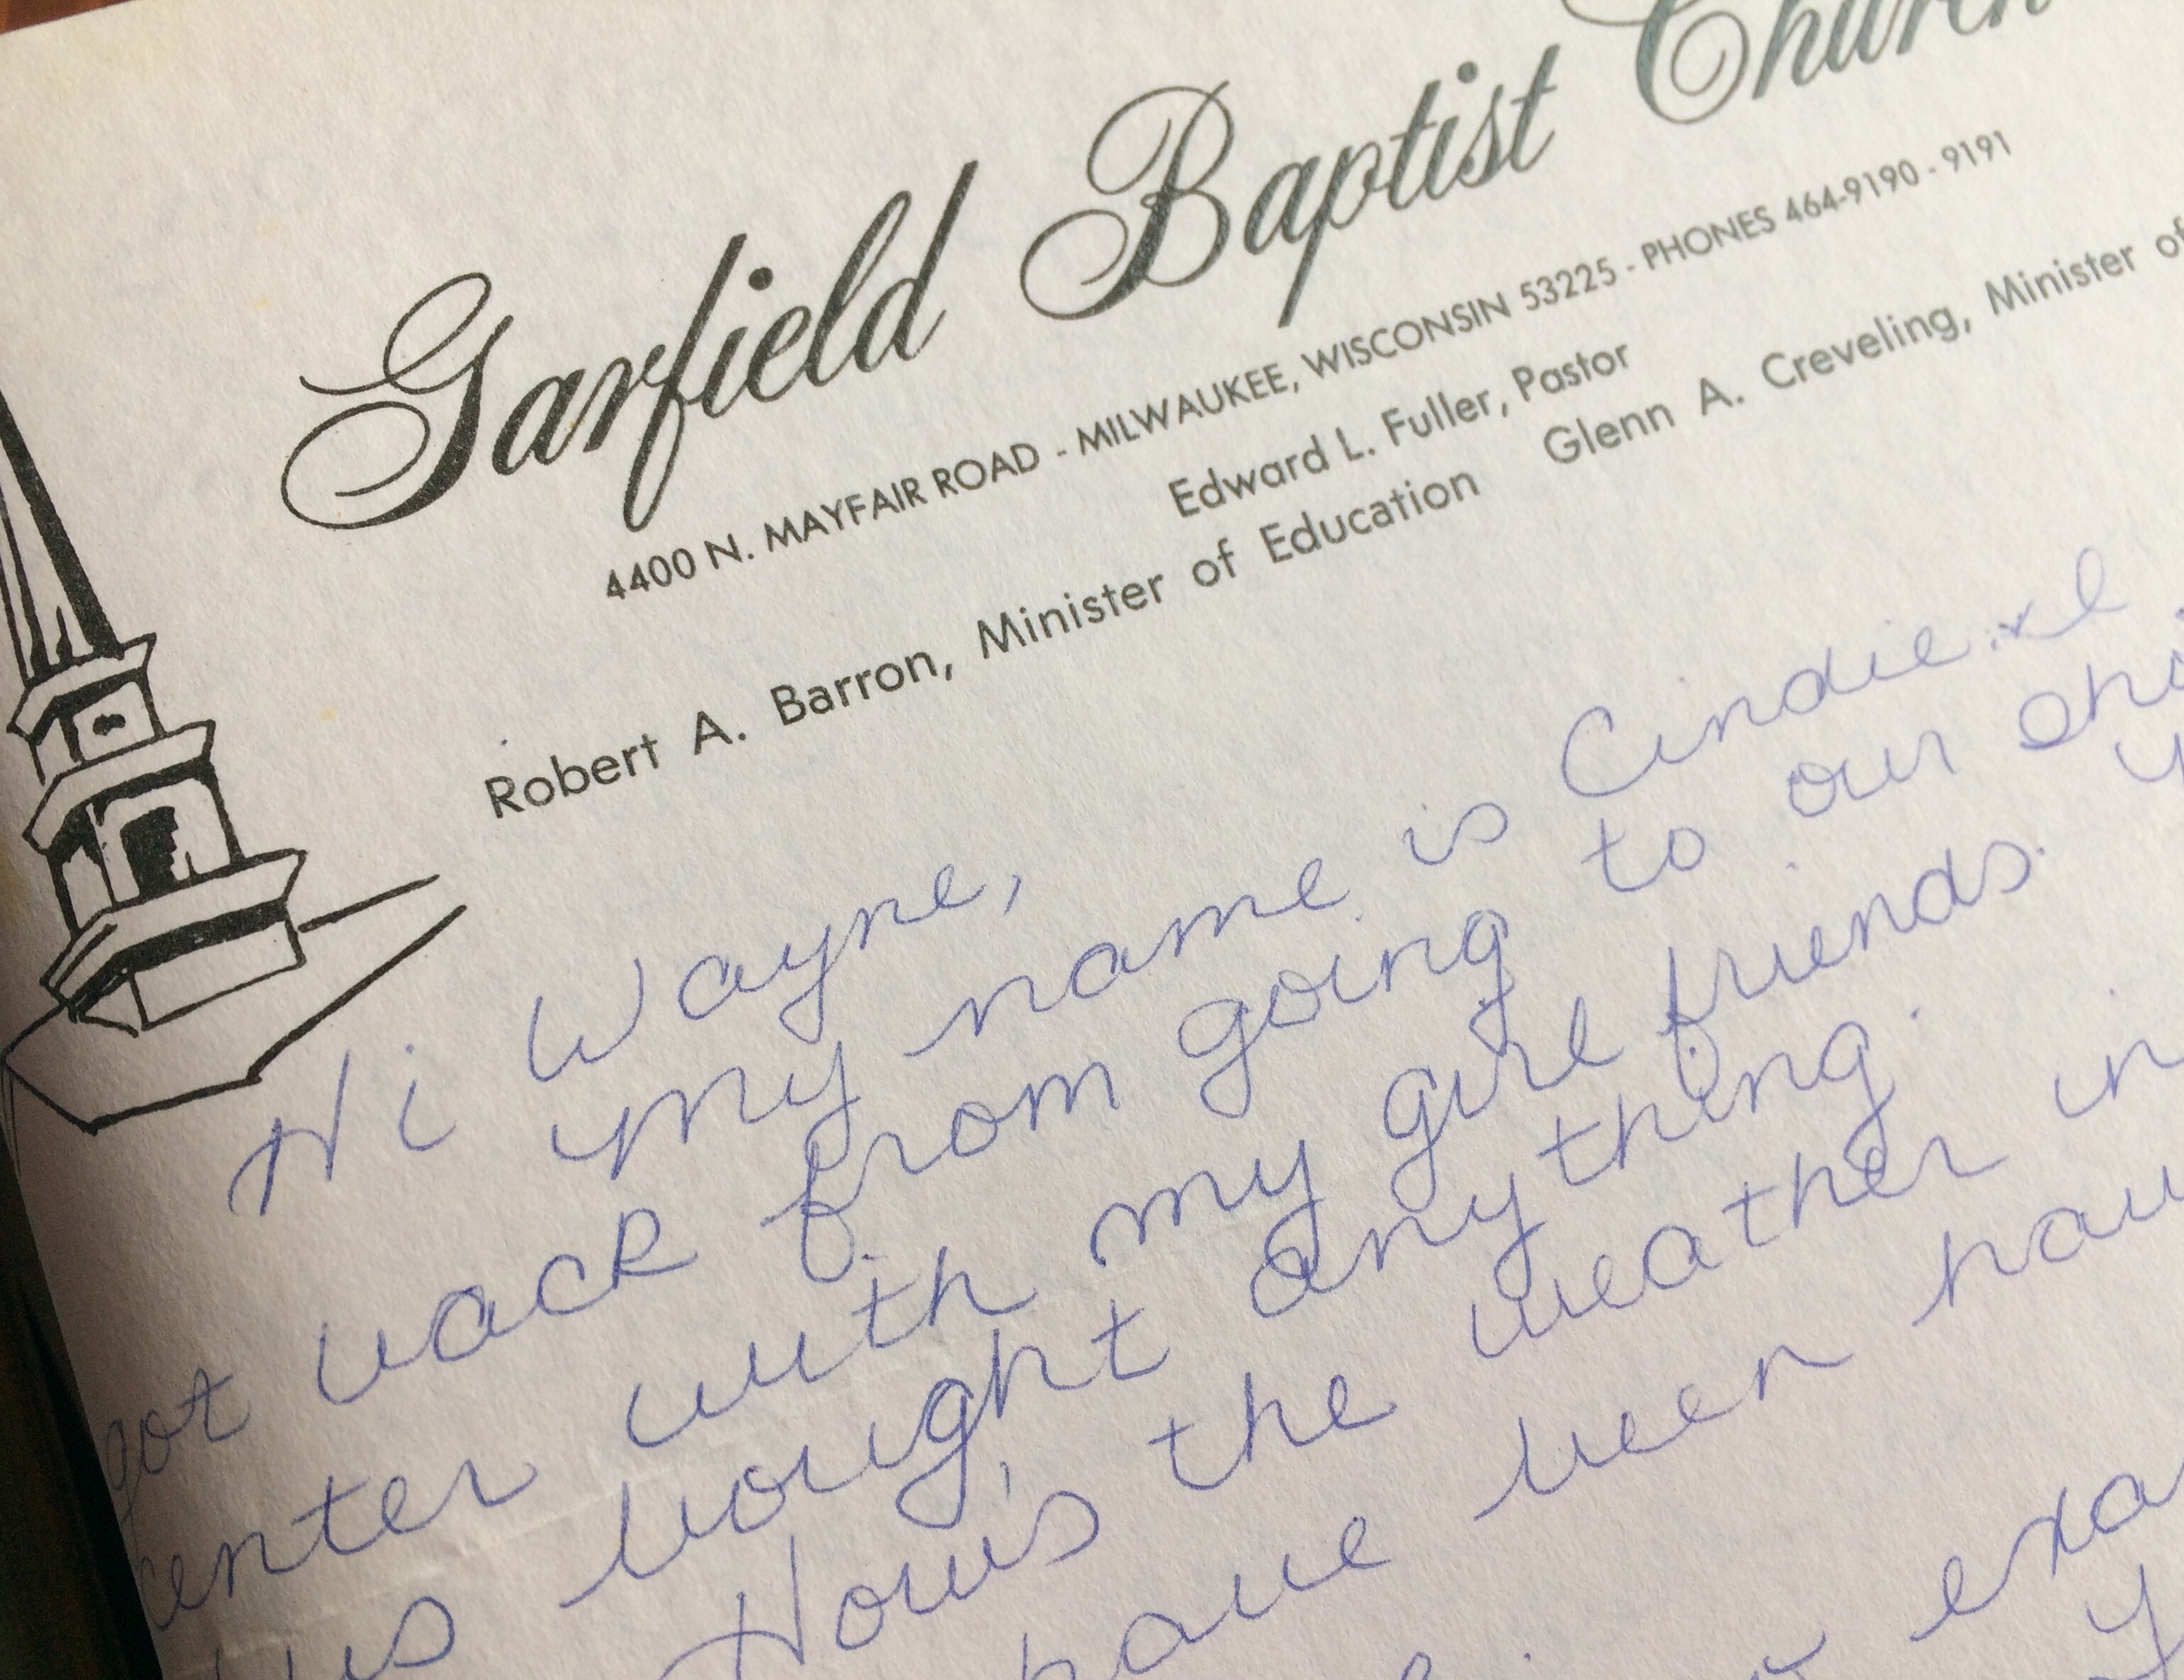 Garfield Baptist Church
4400 N. MAYFAIR ROAD - MILWAUKEE, WISCONSIN 53225 - PHONES 464-9190 - 9191
Edward L. Fuller, Pastor
Robert A. Barron, Minister of Education Glenn A. Creveling, Minister of
Hi Wayne,
my name is Cindie. & I
got back from going to our
center with my girl friends.
bought anything.
How's the weather in
have been